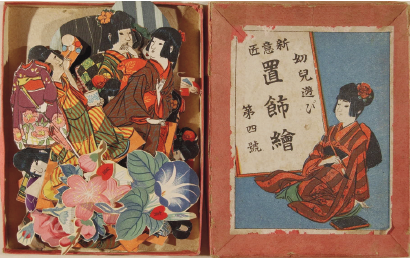 幼兒遊び
新意匠
置飾繪
第四號